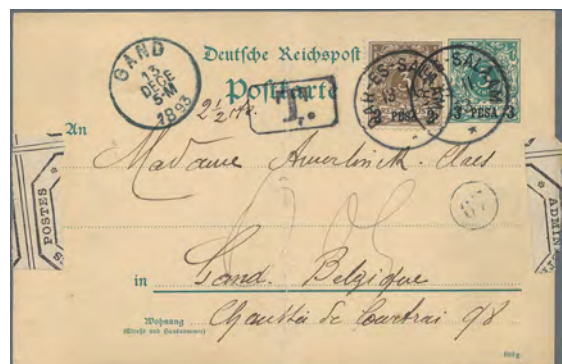 GAND
13
DECE
5-M
1893
Deutsche Reichspost
Postkarte
DAR-ES-SALAAM
2 PESA 2
3 PESA 3
T.
An
Madame Amerlinck-Claes
POSTES
ADMIN
67
in Gand. Belgique
Wohnung
(Straße und Hausnummer)
Chaussée de Courtrai 98